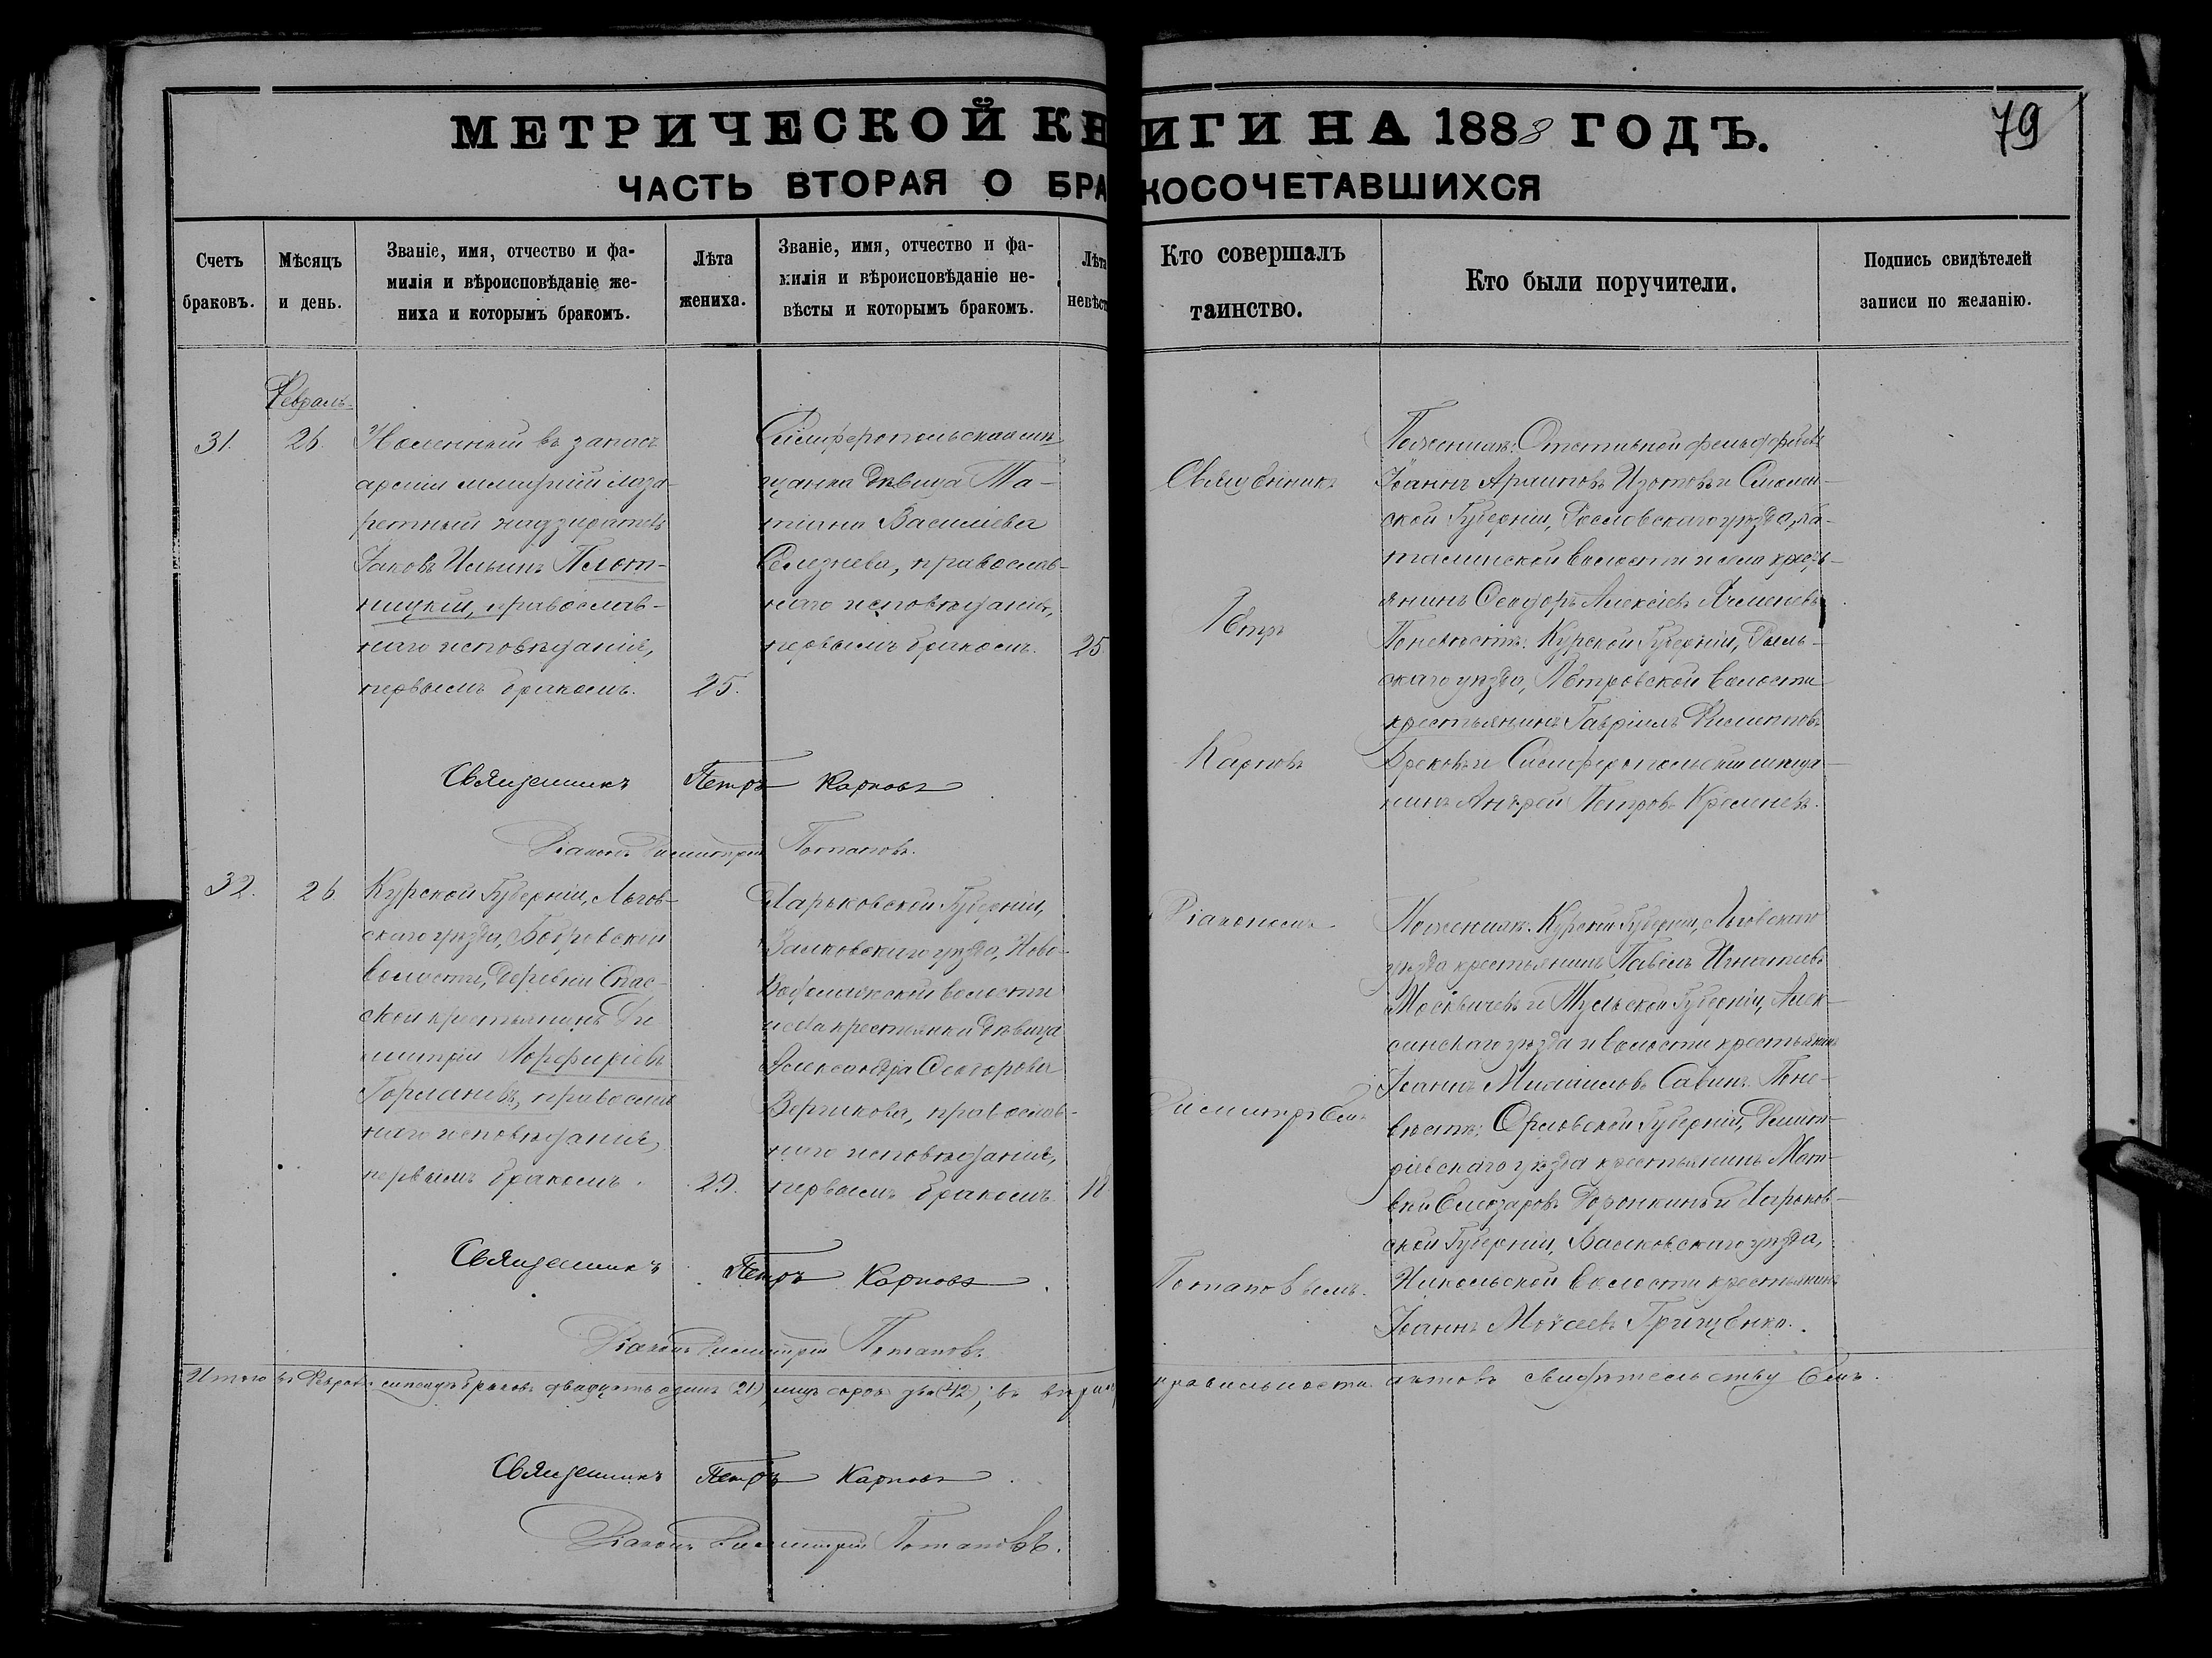 МЕТРИЧЕСКОЙ КНИГИ НА 1888 ГОДЪ.
79
ЧАСТЬ ВТОРАЯ О БРАКОСОЧЕТАВШИХСЯ
Счетъ
браковъ.
Мѣсяцъ
и день.
Званіе, имя, отчество и фа-
милія и вѣроисповѣданіе же-
ниха и которымъ бракомъ.
Лѣта
жениха.
Званіе, имя, отчество и фа-
милія и вѣроисповѣданіе не-
вѣсты и которымъ бракомъ.
Лѣта
невѣст
Кто совершалъ
таинство.
Кто были поручители.
Подпись свидѣтелей
записи по желанію.
Февраль
31.
26.
въ запасъ
арміи младшій лаза-
ретный надзиратель
Іаковъ Ильинъ Плот-
ницкій, православ-
наго исповѣданія,
первымъ бракомъ.
25.
Симферопольская мѣ-
щанка дѣвица Та-
тіана Василіева
Селезнева, православ-
наго исповѣданія,
первымъ бракомъ.
25.
Священникъ
Петръ
Карповъ
По женихѣ: Отставной фельдфебель
Іоаннъ Архиповъ Изотовъ и Смолен-
ской Губерніи, Рославскаго уѣзда,
волости и села кресть-
янинъ Ѳеодоръ Алексіевъ
По невѣстѣ: Курской Губерніи, Рыль-
скаго уѣзда, Петровской волости
крестьянинъ Гавріилъ Филипповъ
и Симферопольскій мѣща-
нинъ Андрей Петровъ Кремневъ.
Священникъ Петръ Карповъ
Діаконъ Димитрій Потаповъ.
32.
26
Курской Губерніи, Льгов-
скаго уѣзда, Бобровской
волости, деревни Спас-
ской крестьянинъ Ди-
митрій Порфиріевъ
православ
наго исповѣданія,
первымъ бракомъ.
29.
Харьковской Губерніи,
Валковскаго уѣзда, Ново-
Водолажской волости
и села крестьянка дѣвица
Александра Ѳеодорова
православ-
наго исповѣданія,
первымъ бракомъ.
18
Діакономъ
Димитріемъ
Потаповымъ.
По женихѣ: Курской Губерніи, Льговскаго
уѣзда крестьянинъ Павелъ Игнатіевъ
Москвичевъ и Тульской Губерніи, Алек-
синскаго уѣзда и волости крестьянинъ
Іоаннъ Михаиловъ Савинъ. По не-
вѣстѣ: Орловской Губерніи, Димит-
ріевскаго уѣзда крестьянинъ Мат-
вей Елеазаровъ и Харьков-
ской Губерніи, Валковскаго уѣзда,
Никольской волости крестьянинъ
Іоаннъ Моѵсеевъ Грищенко.
Священникъ Петръ Карповъ
Діаконъ Димитрій Потаповъ
Итого въ Февралѣ мѣсяцѣ браковъ двадцать одинъ (21), лицъ сорокъ два (42); въ вѣрн правильности актовъ свидѣтельствуемъ.
Священникъ Петръ Карповъ
Діаконъ Димитрій Потаповъ.